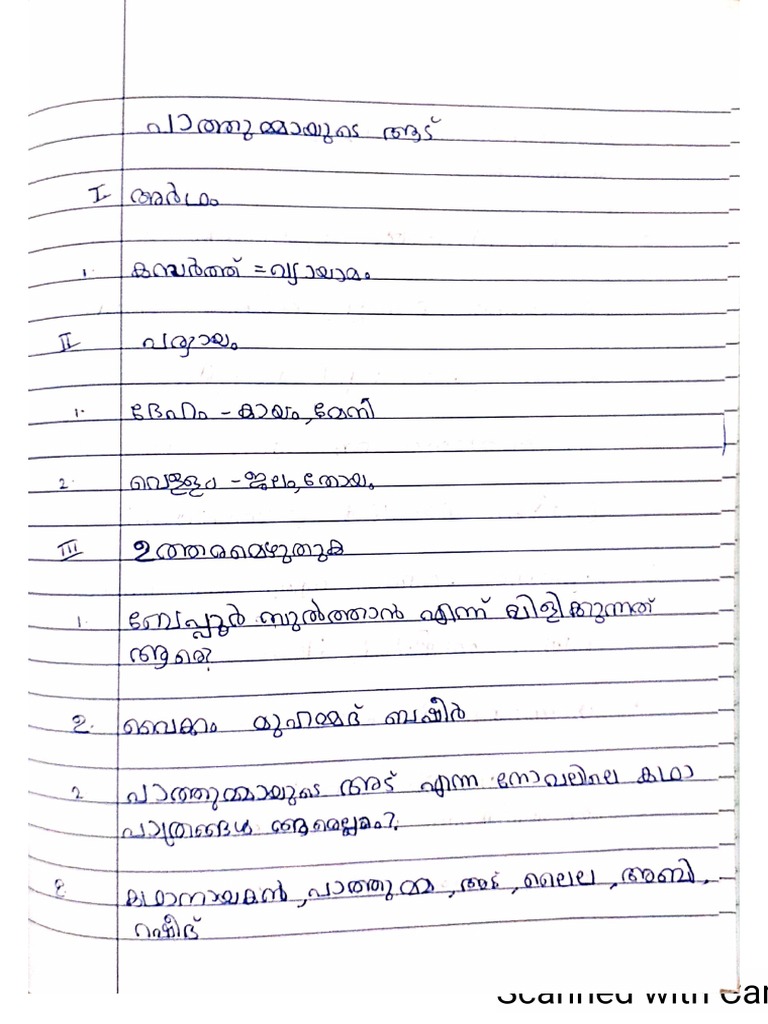 പാത്തുമ്മായുടെ ആട്
I അർഥം
1. കസർത്ത് = വ്യായാമം
II പര്യായം
1. ദേഹം - കായം, മേനി
2. വെള്ളം - ജലം, തോയം
III ഉത്തരമെഴുതുക
1. ബേപ്പൂർ സുൽത്താൻ എന്ന് വിളിക്കുന്നത്
ആരെ?
ഉ. വൈക്കം മുഹമ്മദ് ബഷീർ
2 പാത്തുമ്മായുടെ ആട് എന്ന നോവലിലെ കഥാ
പാത്രങ്ങൾ ആരെല്ലാം?
ഉ. കഥാനായകൻ, പാത്തുമ്മ, ആട്, ലൈല, അബി,
റഷീദ്
Scanned with